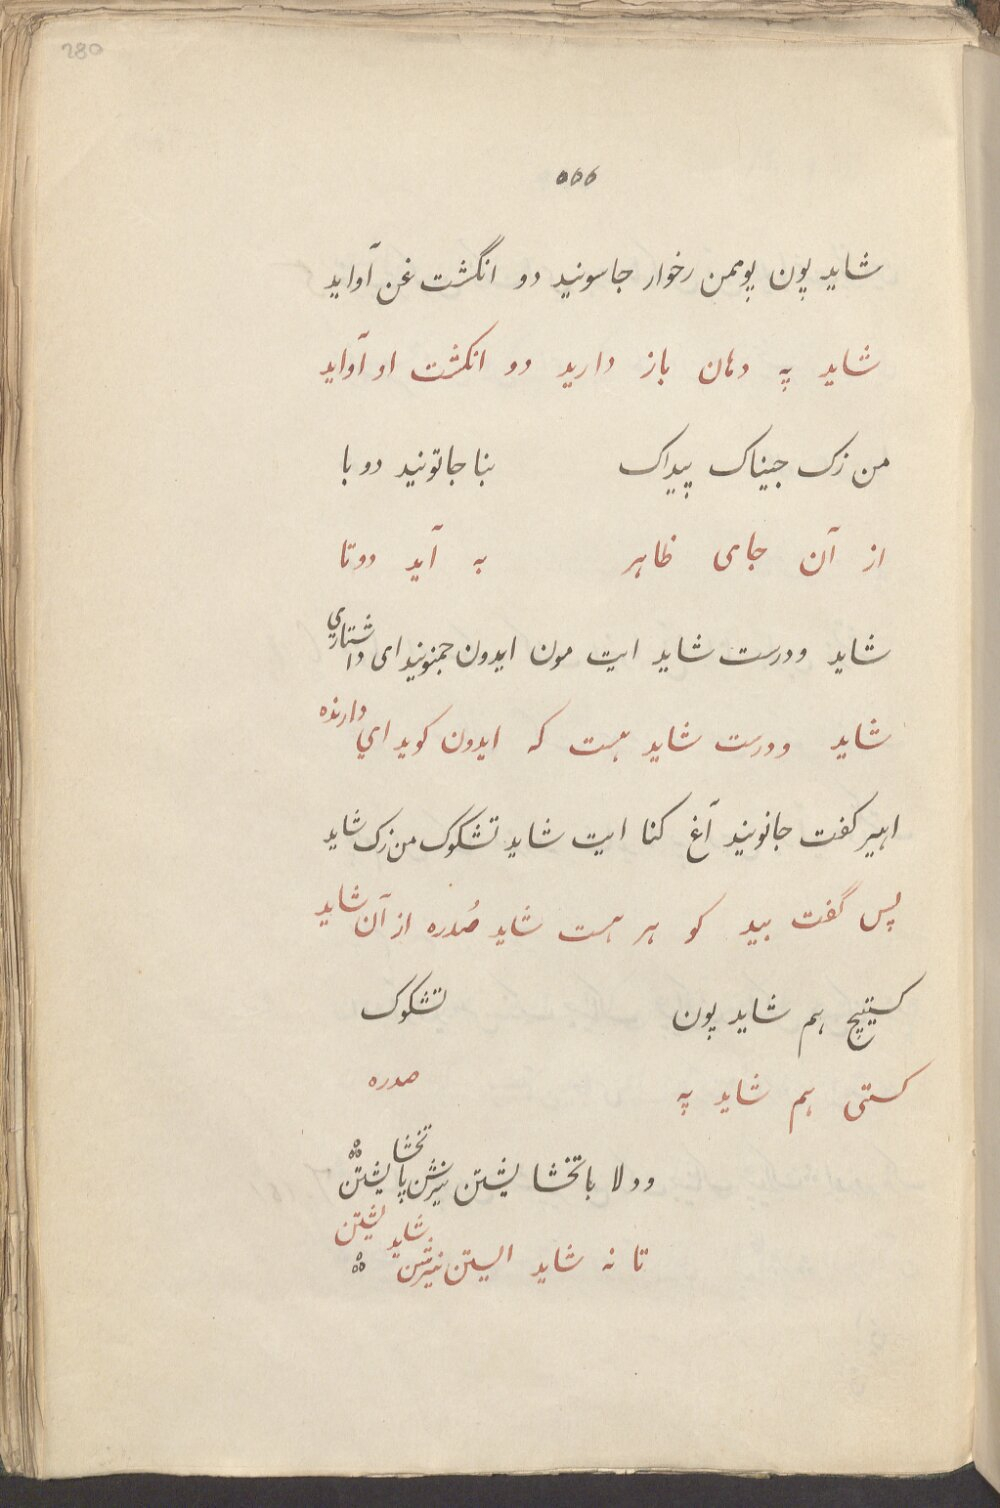 280
۵۵۵
شاید پون پومن رخوار جاسونید دو انگشت غن آواید
شاید په دهان باز دارید دو انکشت او آواید
من زک جیناک پیداک بنا جاتونید دو با
از آن جای ظاهر به آید دوتا
شاید و درست شاید ایت مون ایدون جمنونید ای داشتاری
شاید و درست شاید هست که ایدون کوید اي دارنده
اهیر کفت جانونید آغ کنا ایت شاید تشکوک من زک شاید
پس گفت بید کو هر هست شاید صُدره از آن شاید
کستیچ هم شاید پون تشکوک
کستی هم شاید په صدره
و و لا باتخشا لیشتن نیرنش پاتخشا لیشتن
تا نه شاید الیستن نیرنش شاید لیشتن